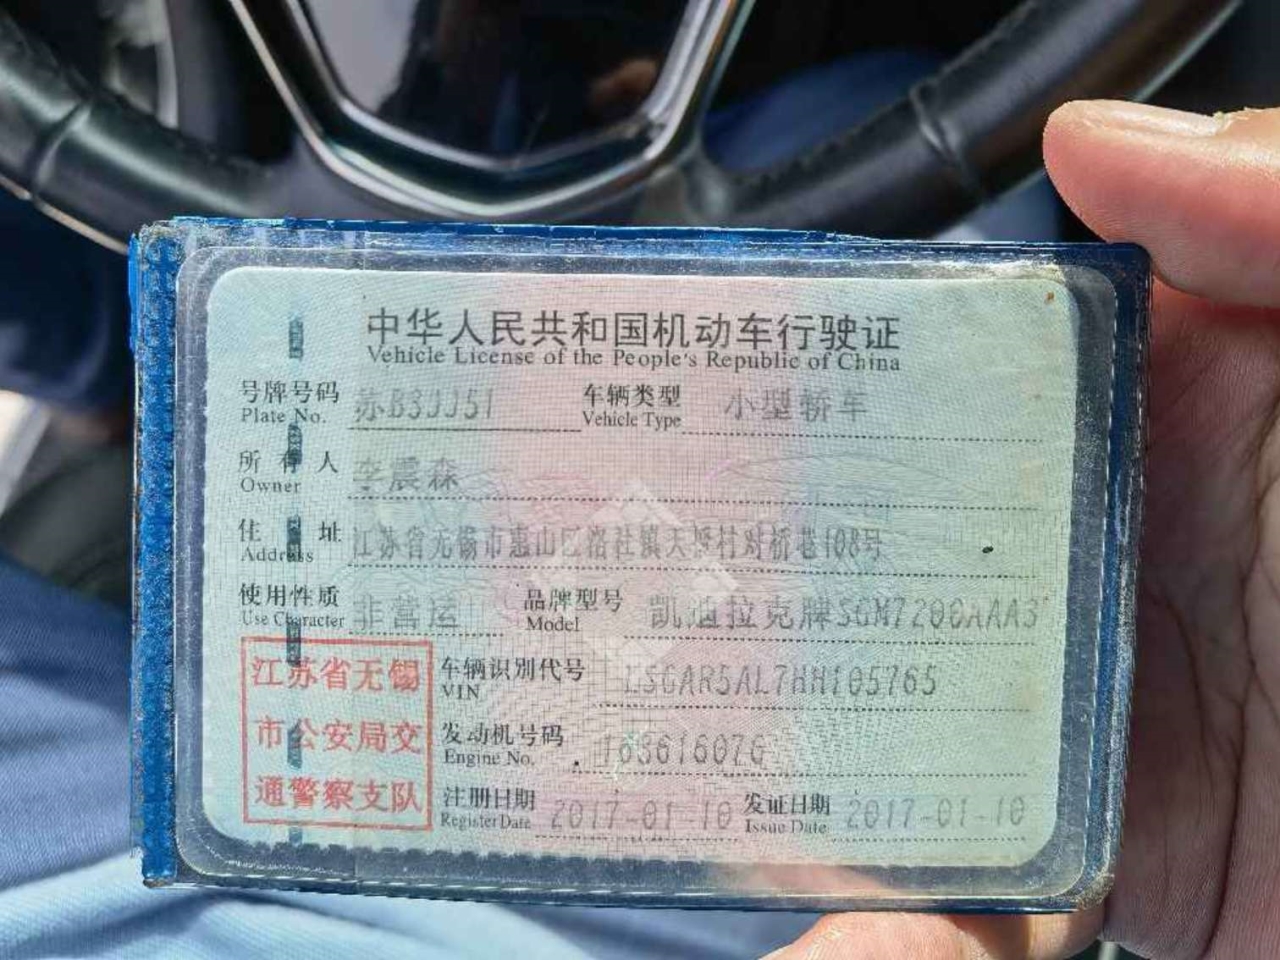 中华人民共和国机动车行驶证
Vehicle License of the People's Republic of China
号牌号码 苏B3JJ51 车辆类型 小型轿车
Plate No. Vehicle Type
所有人 李震森
Owner
住址 江苏省无锡市惠山区洛社镇天授村对桥巷108号
Address
使用性质 非营运 品牌型号 凯迪拉克牌SGM7200AAA3
Use Character Model
江苏省无锡
市公安局交
通警察支队
车辆识别代号 LSGAR5AL7HH105765
VIN
发动机号码 16361607G
Engine No.
注册日期 2017-01-10 发证日期 2017-01-10
Register Date Issue Date